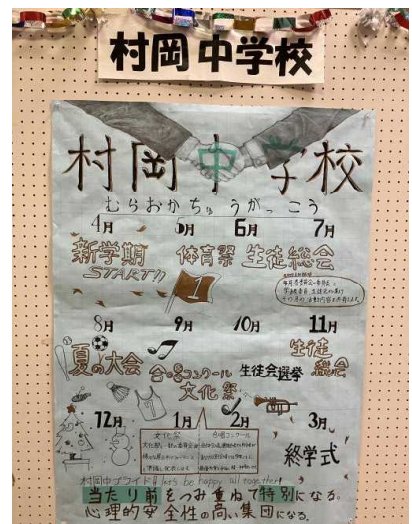 村岡中学校
村岡中学校
むらおかちゅうがっこう
4月 5月 6月 7月
新学期 体育祭 生徒総会
START!!
1
8月 9月 10月 11月
夏の大会 合唱コンクール 生徒会選挙 生徒総会
文化祭
12月 1月 2月 3月
文化祭 合唱コンクール
終学式
村岡中プライド!! let's be happy all together!
当たり前をつみ重ねて特別になる。
心理的安全性の高い集団になる。